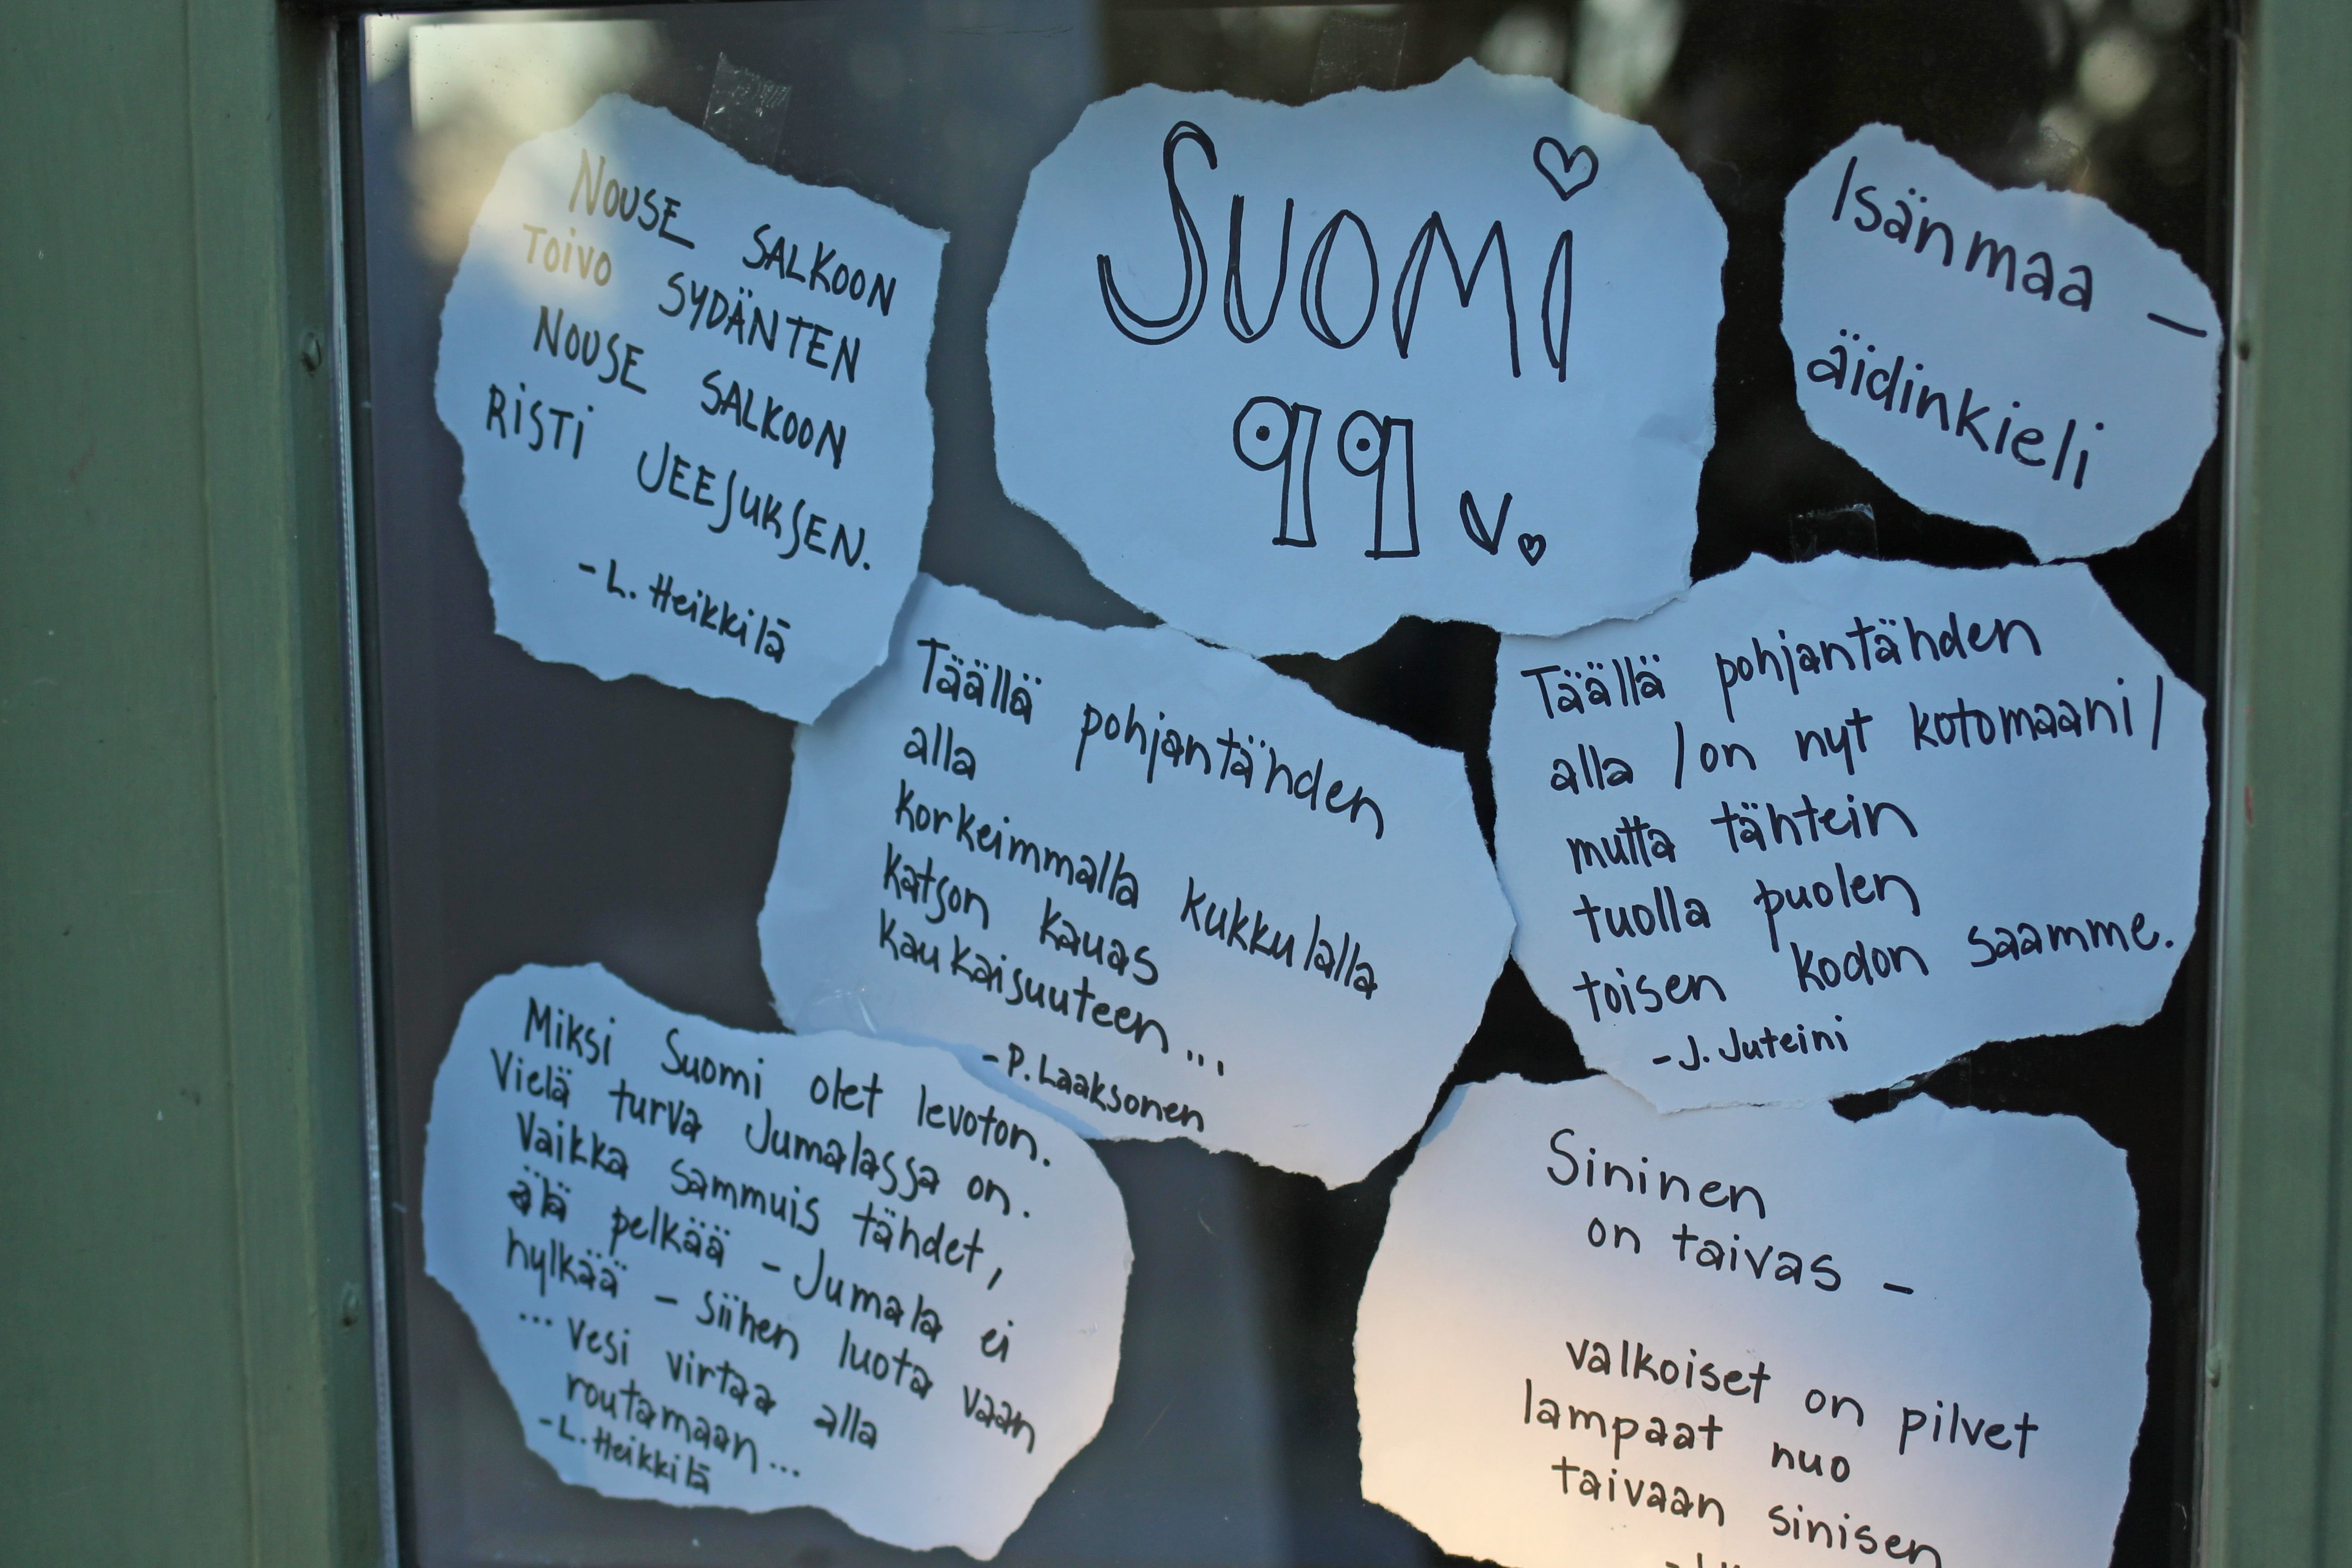 NOUSE SALKOON
TOIVO SYDÄNTEN
NOUSE SALKOON
RISTI JEESUKSEN.
- L. Heikkilä
SUOMI
99 v.
Isänmaa –
äidinkieli
Täällä pohjantähden
alla
korkeimmalla kukkulalla
katson kauas
kaukaisuuteen...
- P. Laaksonen
Täällä pohjantähden
alla / on nyt kotomaani /
mutta tähtein
tuolla puolen
toisen kodon saamme.
- J. Juteini
Miksi Suomi olet levoton.
Vielä turva Jumalassa on.
Vaikka sammuis tähdet,
älä pelkää – Jumala ei
hylkää – siihen luota vaan
... vesi virtaa alla
routamaan...
- L. Heikkilä
Sininen
on taivas –
valkoiset on pilvet
lampaat nuo
taivaan sinisen